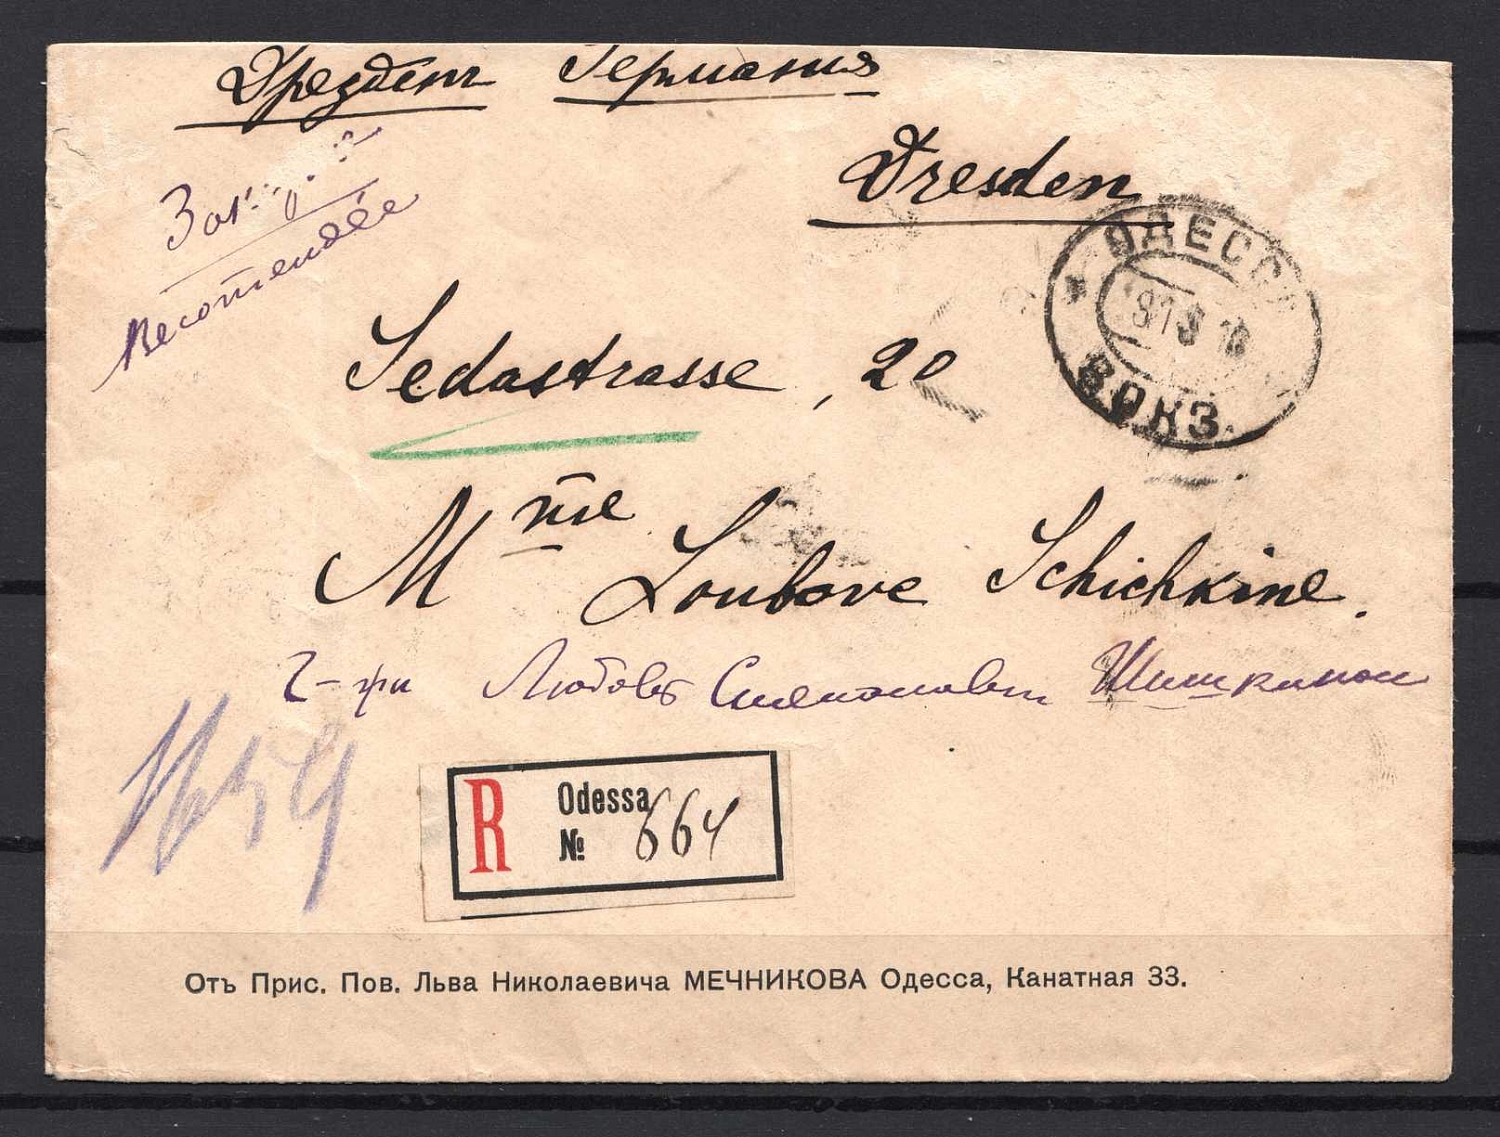 Дрезденъ Германия
Dresden
Recomendée
Sedastrasse, 20
ОДЕССА
ВОКЗ.
Mme Loubove Schichkine.
Г-жи Любовь Симоновны Шишкиной
R Odessa
№ 664
Отъ Прис. Пов. Льва Николаевича МЕЧНИКОВА Одесса, Канатная 33.